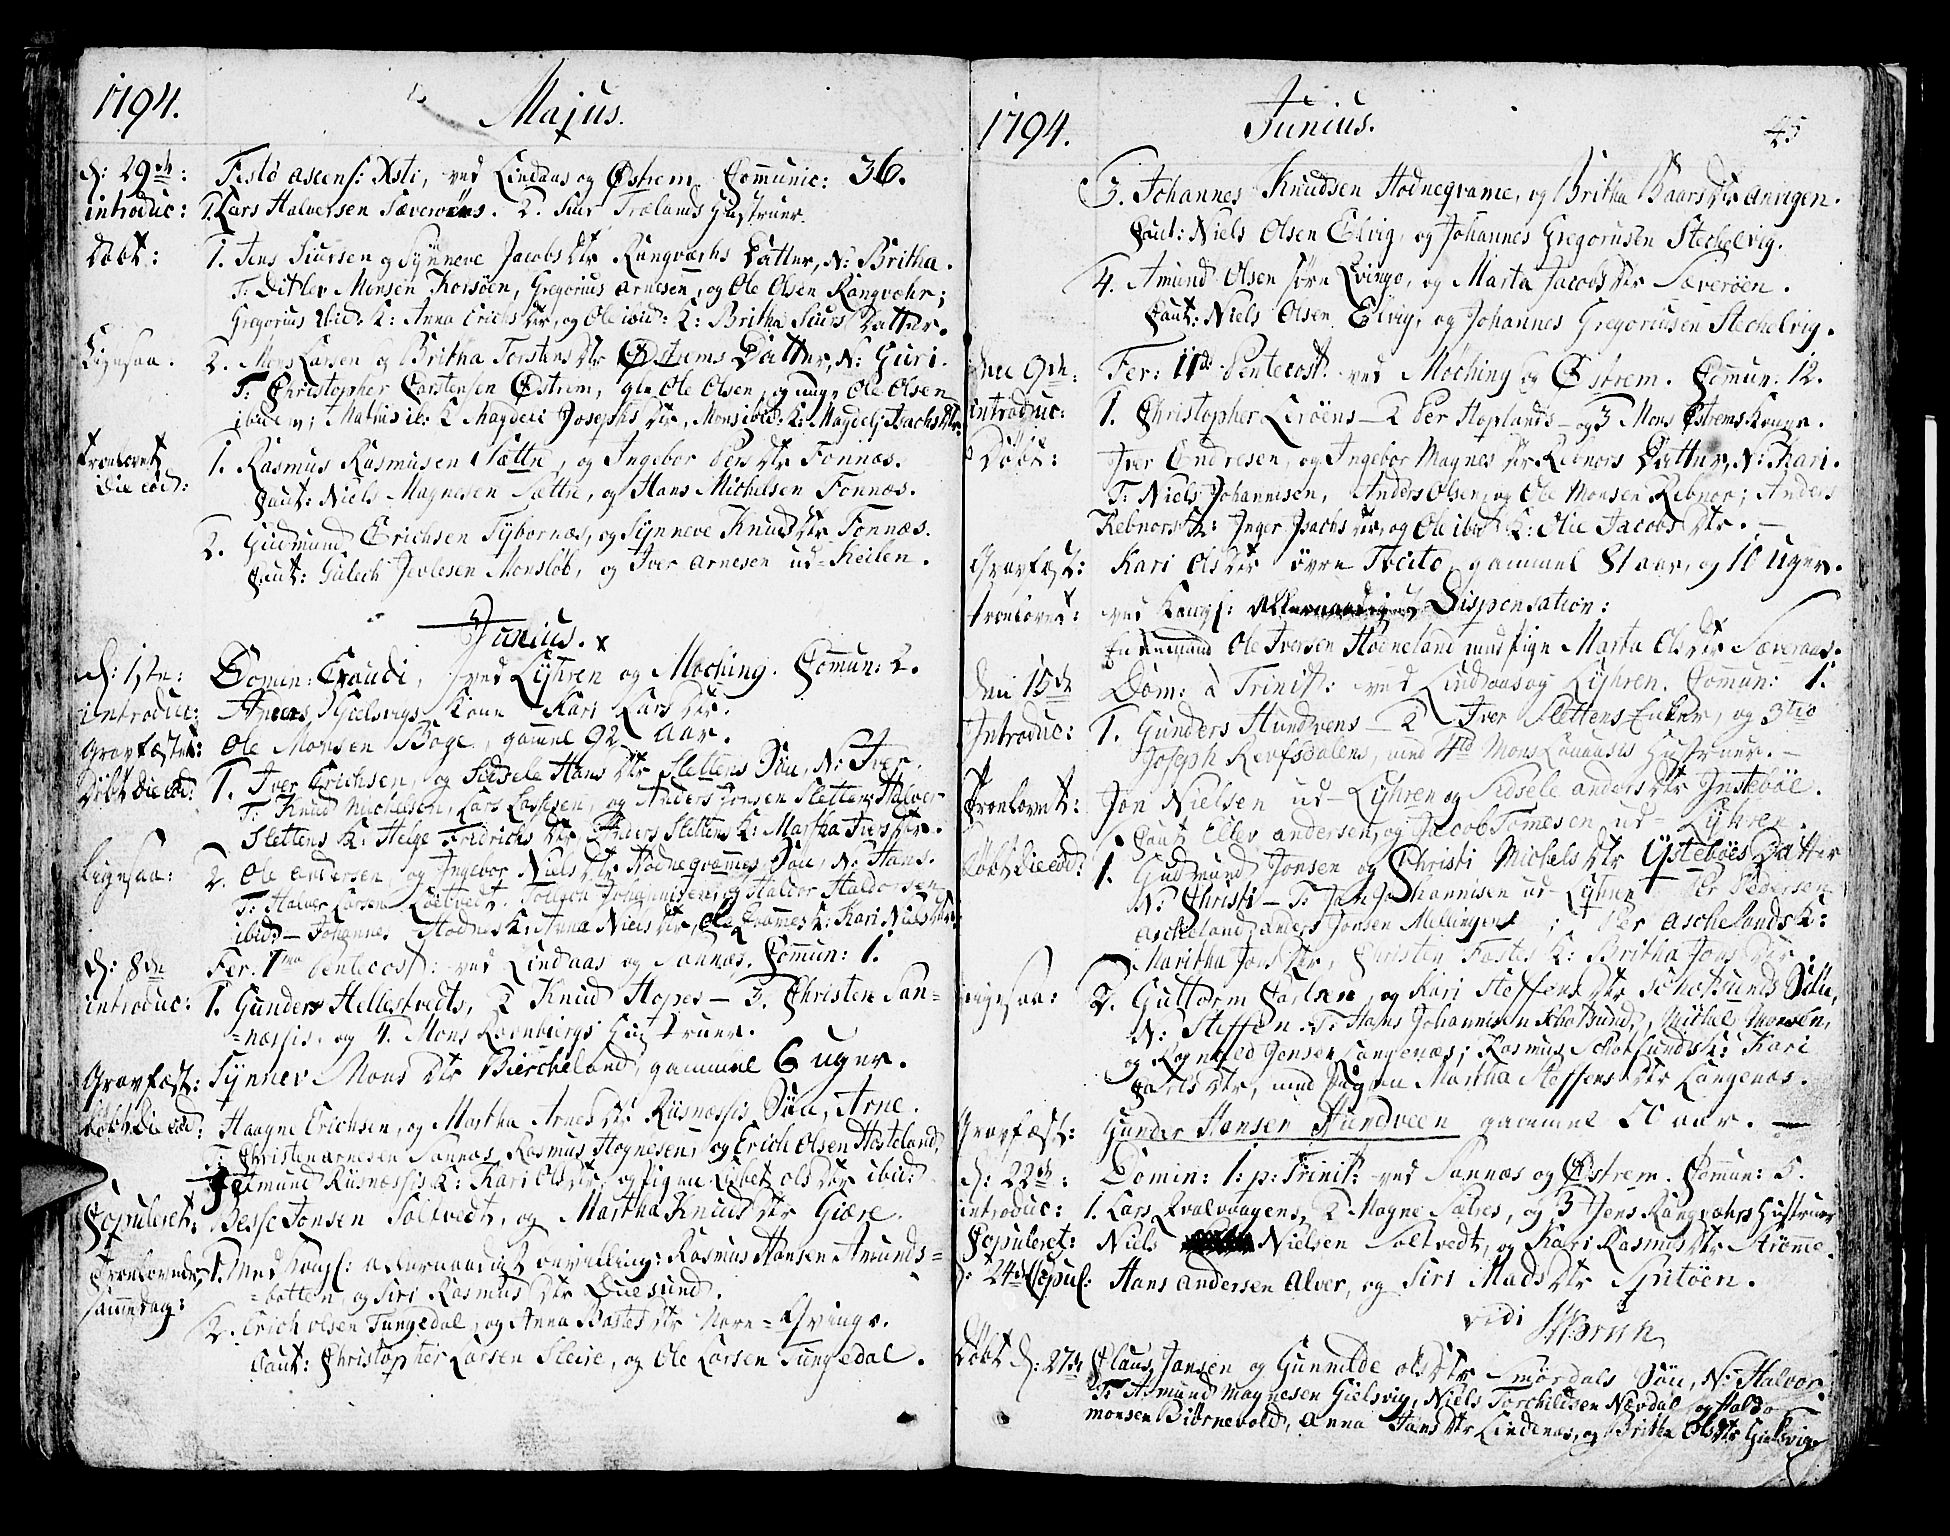 1794. Majus.
d: 29de: Festo ascens: Xsti, ved Lindaas og Østrem. Communic: 36.
introduc: 1. Lars Halversen Sæveröens. 2. Siur Trælands Hustruer.
Döbt: 1. Jens Siursen og Synneve Jacobs Dtr Rangværhs Datter, N: Britha.
T: Ditlev Monsen Korsöen, Gregorius Arnesen, og Ole Olsen Rangvæhr;
Gregorius ibid: K: Anna Erichs Dtr, og Ole ibid: K: Britha Siurs Datter.
Ligesaa. 2. Mons Larsen og Britha Torstens Dtr Østrems Datter, N: Guri.
T: Christopher Carstensen Østrem, gle Ole Olsen, og unge Ole Olsen
ibidem; Matnis ib: K Magdeli Josephs Dtr, Mons ibid: K: Magdeli Isachs Dtr.
Troelovet die eod: 1. Rasmus Rasmusen Sættre, og Ingebor Pers Dtr Fonnæs.
Caut: Niels Magnesen Sættre, og Hans Michelsen Fonnæs.
2. Gudmund Erichsen Sybornæs, og Synneve Knuds Dtr Fonnæs.
Caut: Gulech Jerlesen Monslöb, og Iver Arnesen ud-Keilen.
Junius.
d: 1ste: Domin: Exaudi, ved Lyhren og Moching. Commun: 2.
introduc: Anders Gielsvigs Kone Kari Lars Dtr.
Gravfæstet: Ole Monsen Boge, gamel 92 Aar.
Döbt die eod: 1. Iver Erichsen, og Sidsele Hans Dtr Slettens Sön, N: Iver.
T: Knud Michelsen, Lars Larsen, og Anders Jonsen Sletten; Halver
Slettens K: Helge Fridrichs Dtr, Anders Slettens K: Martha Ivers Dtr.
Ligesaa: 2. Ole Andersen, og Ingebor Niels Dtr Hodneqvames Sön, N: Hans.
T: Halver Larsen Soltvedt, Torgen Johannisen, og Haldor Haldorsen
ibid: – Johannes Hodnes K: Anna Niels Dtr, Ole Qvames K: Kari Niels Dtr.
d: 8de Fer. 1ma Pentecost: ved Lindaas og Sannæs. Commun: 1.
introduc: 1. Gunders Hellestvedts, 2 Knud Hopes – 3. Christen San=
=næssis, og 4. Mons Loenbergs Hustruer.
Gravfæst: Synnev Mons Dtr Biercheland, gammel 6 uger.
Döbt die eod: Haagne Erichsen, og Martha Arnes Dtr Riisnæssis Sön, Arne.
T: Christen Arnesen Sannæs, Rasmus Hognesen, og Erich Olsen Hosteland,
Jetmund Riisnæssis K: Kari Ols Dtr, og pigen Lisbet Ols Dtr ibid:
Copuleret: Besse Jonsen Soltvedt, og Martha Knuds Dtr Giære.
Troelovede samedag: 1. Med Kongl: allernaadigst bevilling: Rasmus Hansen Amunds=
=botten, og Siri Rasmus Dtr Duesund.
2. Erich Olsen Tungedal, og Anna Bastes Dtr Norn=Qvinge.
Caut: Christopher Larsen Sleire, og Ole Larsen Tungedal.
1794. Junius. 45
3. Johannes Knudsen Hodneqvame, og Britha Baars Dtr Anrigen.
Caut: Niels Olsen Elvig, og Johannes Gregoriusen Stechelvig.
4. Amund Olsen söre Qvinge, og Marta Jacobs Dtr Sæveröen.
Caut: Niels Olsen Elvig, og Johannes Gregoriusen Stechelvig.
Den 9de: Fer: IIda Pentecost. ved Moching og Østrem. Commun: 12.
introduc: 1. Christopher Leröens – 2 Per Hoplands – og 3 Mons Østrems Koner.
Döbt: Iver Endresen, og Ingebor Magnes Dtr Rebnors Datter, N: Kari.
T: Niels Johannisen, Anders Olsen, og Ole Monsen Rebnor; Anders
Rebnors K: Inger Isachs Dtr, og Ole ibid K: Olie Jacobs Dtr. –
Gravfæst: Kari Ols Dtr övre Tveite, gammel 81 aar, og 10 uger.
Troelovet: ved Kongl: Dispensation:
Enkemand Ole Iversen Hodneland med pige Marta Ols Dtr Sæveraas.
Den 15de Dom: à Trinit: ved Lindaas og Lyhren. Commun: 1.
Introduc: 1. Gunders Hundvens – 2 Iver Slettens Enke, og 3tio
Joseph Refsdalens, med 4to Mons Hustruer. –
Troelovet: Jon Nielsen ud-Lyhren og Sidsele Anders Dtr Insteböe.
Caut: Ellev Andersen, og Jacob Tomesen ud-Lyhren.
Döbt die eod: 1. Gudmund Jonsen og Christi Michels Dtr Ystebös Datter
N: Christi – T: Jan Johannisen ud-Lyhren, Per Pedersen
Ascheland, Anders Jonsen Mellingen; Per Aschelands K:
Maritha Jons Dtr, Christen Fæstes K: Britha Jons Dtr.
Ligesaa: 2. Guttorm Carlsen, og Kari Steffens Dtr Schotsunds Sön,
N: Steffen. T: Hans Johannisen Schotsund, Michel Monsen,
og Rognald Jensen Langenæs; Rasmus Schotsunds K: Kari
Carls Dtr, med Pigen Martha Steffens Dtr Langenæs.
Gravfæst: Gunder Hansen Hundveen gammel 50 aar. –
d: 22de: Domin: 1: p: Trinit: ved Sannæs og Østrem. Commun: 5.
introduc: 1. Lars Qvalvaagens, 2 Magne Sætres, og 3 Jens Rangvæhrs Hustruer
Copuleret: Niels Nielsen Soltvedt, og Kari Rasmus Dtr Strömme.
d: 24de Copul: Hans Andersen Alver, og Siri Mads Dtr Spitöen.
vidi
Döbt d: 27de Claus Jansen og Gunnilde Ols Dtr Smördals Sön, N: Halvor.
T: Amund Magnesen Gielsvig, Niels Torchildsen Nævdal, og Haldo
Monsen Biörnevold, Anna Hans Dtr Lindenæs, og Britha Ols Dtr Gielsvig